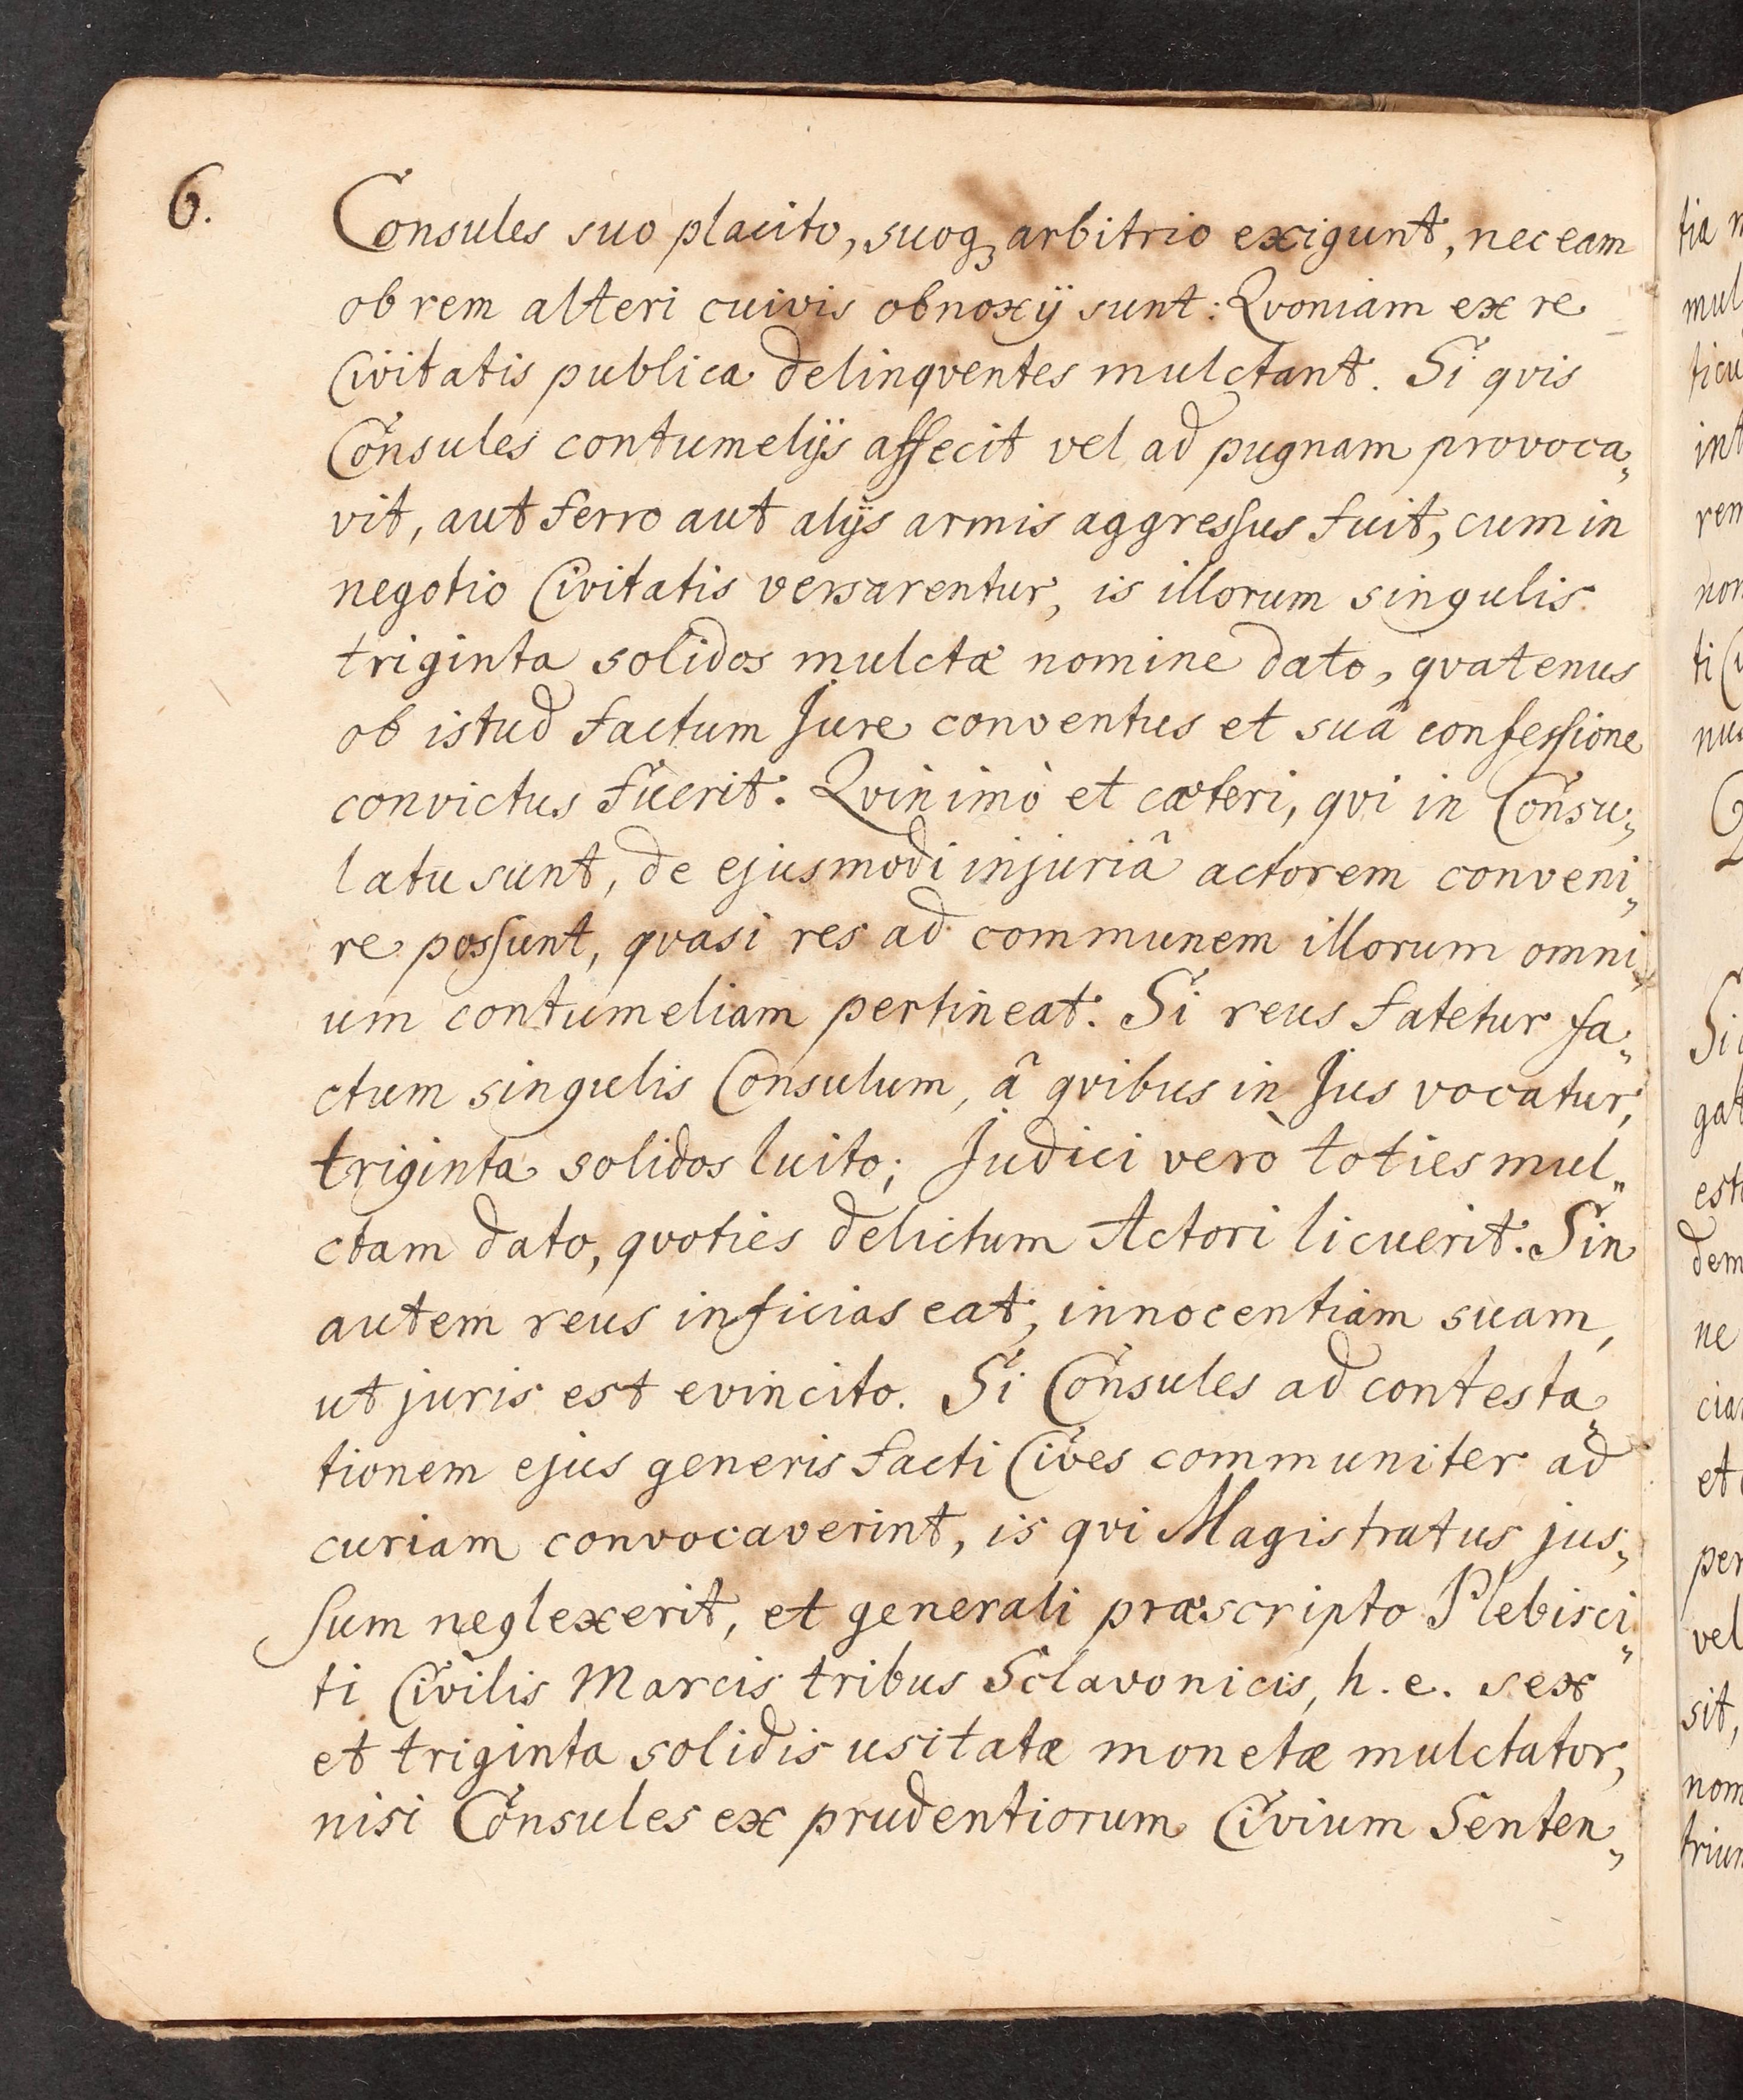 6.
Consules suo placito, suoqꝫ arbitrio exigunt, nec eam
ob rem alteri cuivis obnoxÿ sunt: Qvoniam ex re
Civitatis publica delinqventes mulctant. Si qvis
Consules contumelÿs affecit vel ad pugnam provoca„
vit, aut ferro aut alÿs armis aggressus fuit, cum in
negotio Civitatis versarentur, is illorum singulis
triginta solidos mulctæ nomine dato, qvatenus
ob istud factum Jure conventus et suâ confessione
convictus fuerit. Qvinimò et cæteri, qvi in Consu„
latu sunt, de ejusmodi injuriâ actorem conveni„
re possunt, qvasi res ad communem illorum omni„
um contumeliam pertineat. Si reus fatetur fa„
ctum singulis Consulum, â qvibus in Jus vocatur,
triginta solidos luito; Judici verò toties mul„
ctam dato, qvoties delictum Actori licuerit. Sin
autem reus inficias eat, innocentiam suam,
ut juris est evincito. Si Consules ad contesta„
tionem ejus generis facti Cives communiter ad
curiam convocaverint, is qvi Magistratus jus„
sum neglexerit, et generali præscripto Plebisci„
ti Civilis Marcis tribus Sclavonicis, h. e. sex
et triginta solidis usitatæ monetæ mulctator,
nisi Consules ex prudentiorum Civium Senten„